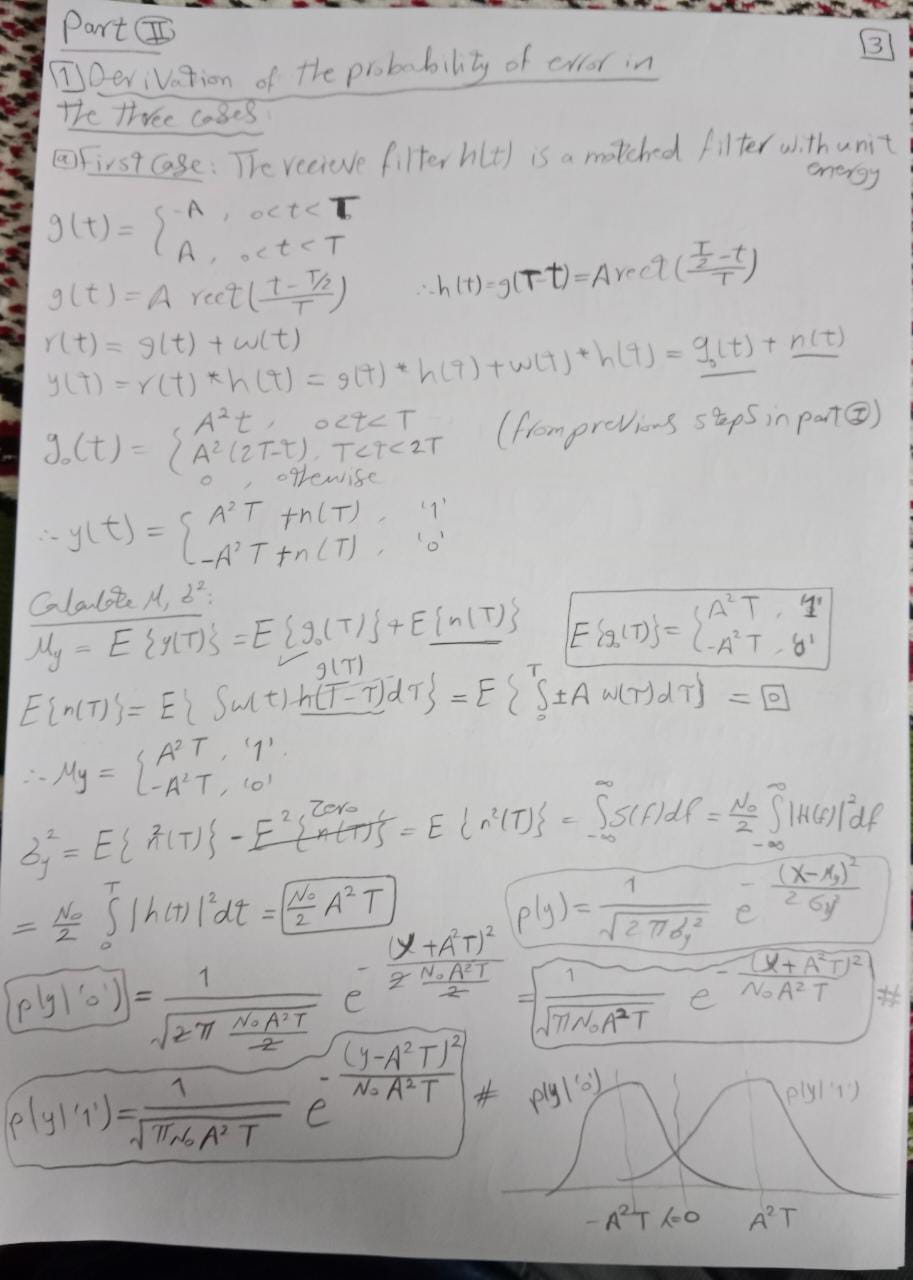 Part II
3
1 Derivation of the probability of error in
the three cases:
a First Case: The recieve filter h(t) is a matched filter with unit
energy
g(t) = { -A , o<t<T
A , o<t<T
g(t) = A rect((t - T/2)/T) ∴ h(t) = g(T-t) = A rect((T/2 - t)/T)
r(t) = g(t) + w(t)
y(t) = r(t) * h(t) = g(t) * h(t) + w(t) * h(t) = g₀(t) + n(t)
g₀(t) = { A²t , o<t<T (from previous steps in part I)
A²(2T-t) , T<t<2T
0 , othewise
∴ y(t) = { A²T + n(T) , '1'
-A²T + n(T) , '0'
Calculate M, σ²:
My = E{y(T)} = E{g₀(T)} + E{n(T)} E{g₀(T)} = { A²T , '1'
-A²T , '0'
g(T)
E{n(T)} = E{∫w(t) h(T-T)dT} = E{∫₀ᵀ ±A w(T)dT} = 0
∴ My = { A²T , '1'
-A²T , '0'
zero
σy² = E{n²(T)} - E²{n(T)} = E{n²(T)} = ∫_{-∞}^{∞} S(f)df = N₀/2 ∫_{-∞}^{∞} |H(f)|² df
= N₀/2 ∫₀ᵀ |h(t)|² dt = N₀/2 A²T p(y) = 1/√(2πσy²) e^{-(x-My)²/(2σy²)}
p(y|'0') = 1/√(2π N₀A²T/2) e^{-(y+A²T)²/(2 N₀A²T/2)} = 1/√(πN₀A²T) e^{-(y+A²T)²/(N₀A²T)} #
p(y|'1') = 1/√(πN₀A²T) e^{-(y-A²T)²/(N₀A²T)} #
p(y|'0') p(y|'1')
-A²T λ=0 A²T